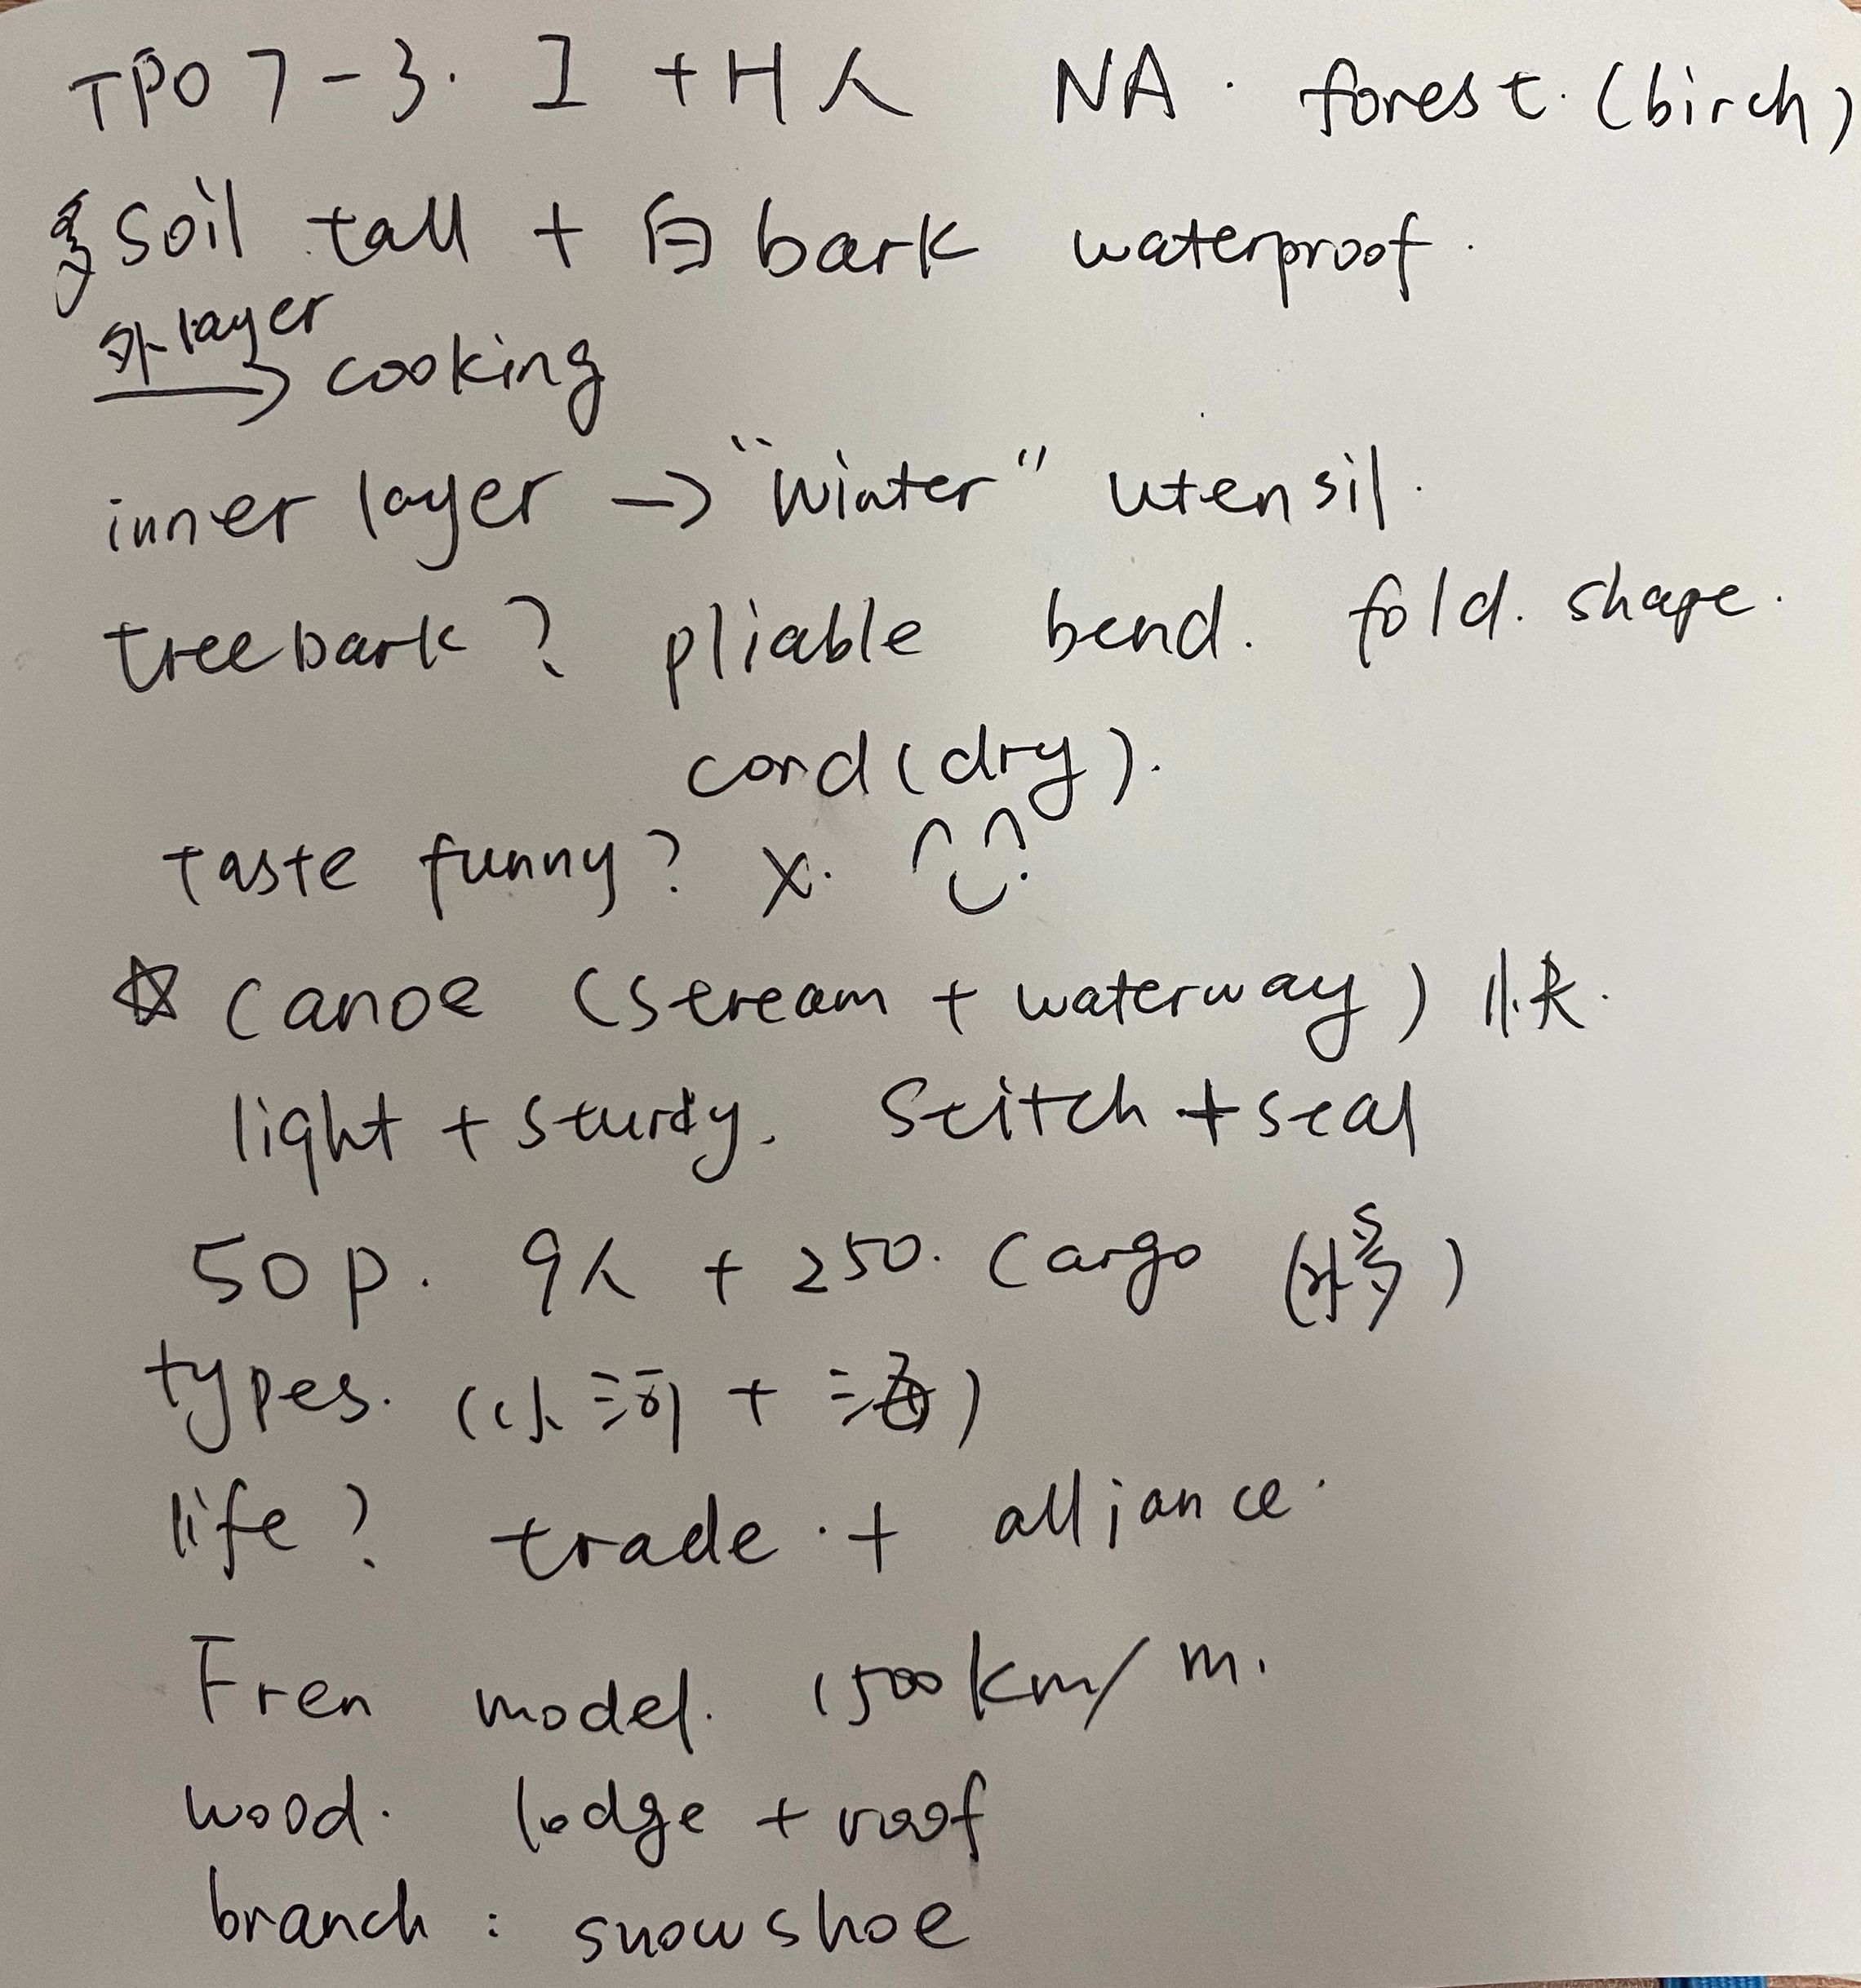 TPO 7-3. I + H人 NA. forest. (birch)
多 soil tall + 白 bark waterproof.
外 layer
→ cooking
inner layer → "winter" utensil.
treebark? pliable bend. fold. shape.
cord (dry).
taste funny? x.
☆ canoe (stream + waterway) 快.
light + sturdy. stitch + seal
50 p. 9人 + 250. cargo
types. (小河 + 海)
life? trade. + alliance.
Fren model. 1500 km/m.
wood. lodge + roof
branch: snowshoe